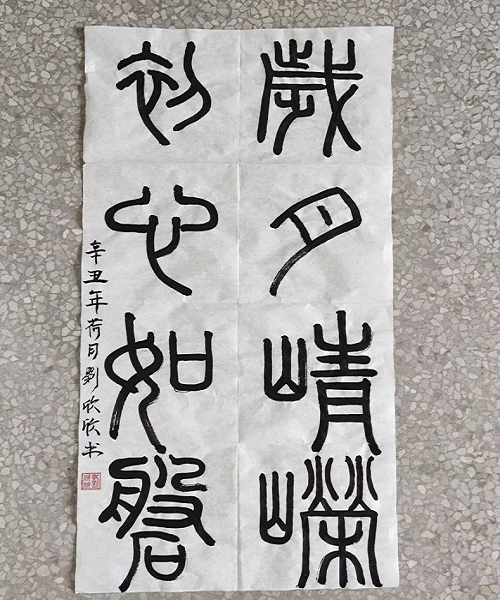 歲月崝嶸
初心如磐
辛丑年荷月劉欣欣书